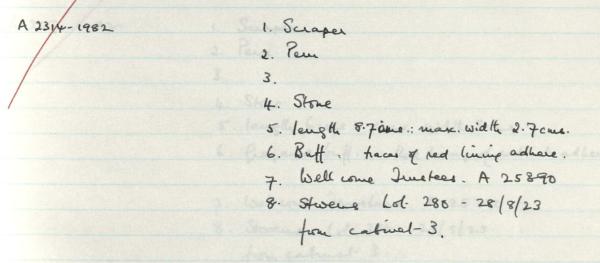 A 2314-1982
1. Scraper
2. Peru
3.
4. Stone
5. length 8.7cms.: max. width 2.7cms.
6. Buff. traces of red lining adhere.
7. Wellcome Trustees. A 25890
8. Stevens Lot 280 - 28/8/23
from cabinet 3.